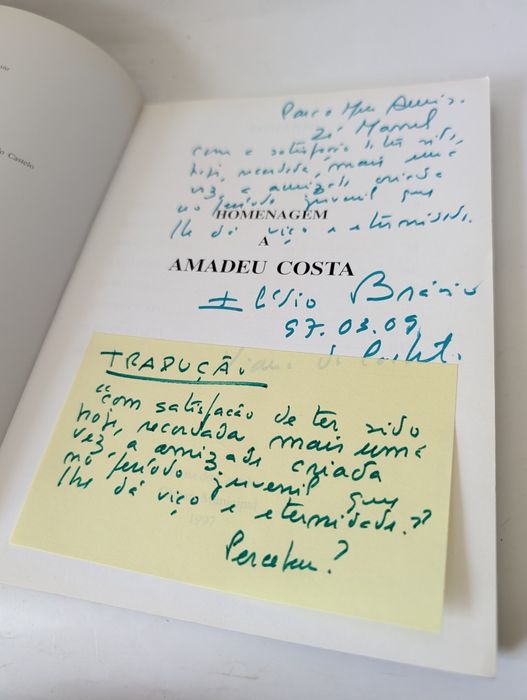 o Castelo
Para o Meu Amigo
Zé Manuel
com a satisfação de ter sido,
hoje, recordada, mais uma
vez, a amizade criada
no período juvenil que
lhe dá viço e eternidade.
HOMENAGEM
A
AMADEU COSTA
Brásio
97.03.09
Viana do Castelo
TRADUÇÃO
"com satisfação de ter sido
hoje, recordada mais uma
vez, a amizade criada
no período juvenil que
lhe dá viço e eternidade."
1997
Percebeu?